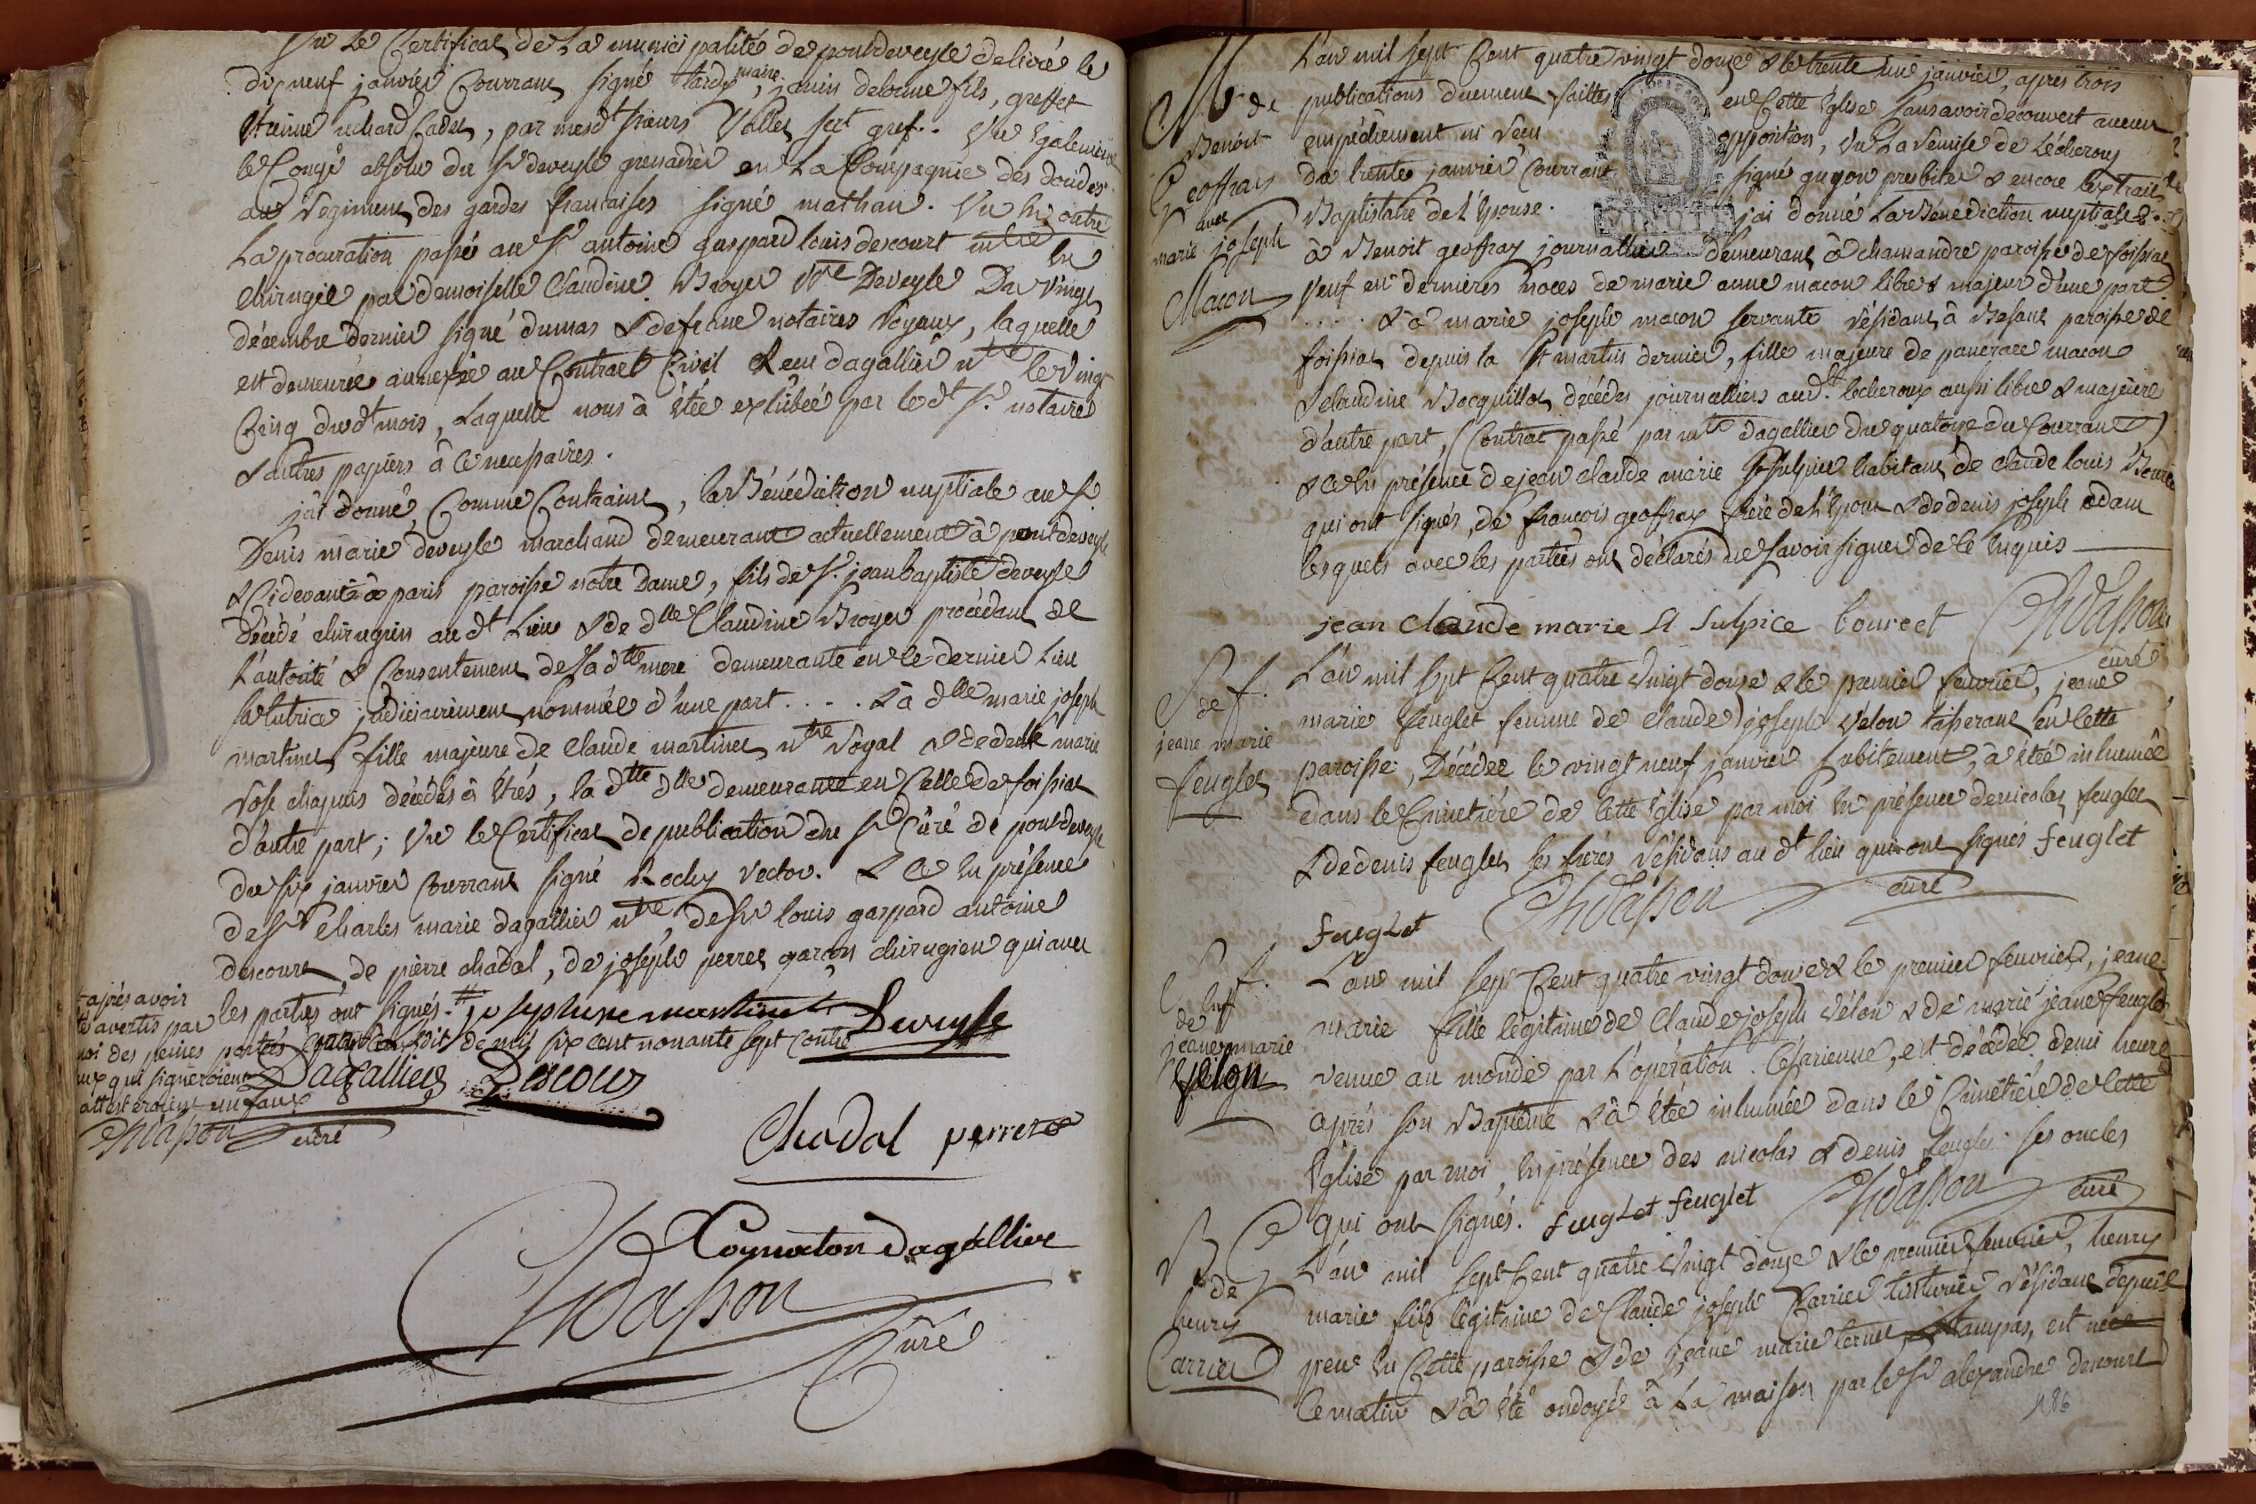 Vu le Certificat de La municipalité de pontdeveyle delivré le
dixneuf janvier Courrant signé tardy maire, janin delorme fils, greffet
Etienne richard Cadet, par mesdt sieurs Vallet sect gref.. Vu Egalement
le Congé absolu du Sr deveyle grenadier en La Compagnie des
au Regiment des gardes francaises signé mathan. Vu En outre
La procuration passé au Sr antoine gaspard louis descourt mtre En
chirugie par demoiselle Claudine Broyer Vve Deveyle Du Vingt
décembre dernier signé dumas & defenne notaires Royaux, laquelle
est demeurée annexée au Contract Civil Reçu dagallier ntre le Vingt
Cinq dudt mois, Laquelle nous à êtée exhibée par ledt Sr notaire
& autres papiers à ce necessaires.
j'ai donné, Comme Contraint, la Bénédiction nuptiale au Sr
Denis marie deveyle marchand demeurant actuellement à pontdeveyle
& Cidevant à paris paroisse notre Dame, fils de Sr jean baptiste deveyle
Décédé chirugien audt Lieu & de dlle Claudine Broyer procédant de
L'autorité & Consentement de sadtte mere demeurante en le dernier Lieu
sa tutrice judiciairement nommée d'une part.... & à dlle marie joseph
martinet fille majeure de Claude martinet ntre Royal & de delle marie
Rose chapuis décédés à trés, la dtte dlle demeurante en Celle de foissiat
d'autre part; Vu le Certificat de publication du Sr Curé de pontdeveyle
du six janvier Courrant signé Rochy rector. & Ce En présence
de Sr Charles marie dagallier ntre, de Sr louis gaspard antoine
descourt, de pierre chadal, de joseph perret garçon chirugien qui avec
les parties ont signés. # josephine martinet Deveyle
+ aprés avoir
été avertis par
moi des peines portés par l'édit de mil six cent nonante sept contre
ceux qui signeroient
& attesteroient un faux
Dagallier Descour
Chdasson curé
Chadal perret
Coynaton dagallier
Chdasson
Curé
M
de
Benoit
Geoffray
avec
marie joseph
Macon
L'an mil sept Cent quatre vingt douze & le trente un janvier, apres trois
publications duement faittes en Cette Eglise sans avoir decouvert aucun
empéchement ni Reçu opposition, Vu La Remise de Lécheroux
du trente janvier Courrant signé guyon presbiter & encore lextrait
Baptistaire de L'Epouse. j'ai donné La Bénédiction nuptiale
à Benoit geoffray journallier demeurant à chamandre paroisse de foissiat
Veuf en dernières noces de marie anne macon libre & majeur d'une part
.... & à marie joseph macon servante résidant à Besant paroisse de
foissiat depuis la St martin dernier, fille majeure de pancrace macon
& claudine Bocquillot décédés journalliers audt. lecheroux aussi libre & majeure
d'autre part, (Contrat passé par mtre dagallier du quatorze du Courrant)
& Ce En présence de jean claude marie St sulpice habitant de claude louis Bource
qui ont signés, de françois geoffray frere de L'Epoux & de denis joseph adam
lesquels avec les parties ont déclarés ne savoir signer de ce Enquis
jean claude marie St Sulpice bourcet Chdasson
curé
S f.
de
jeane marie
feuglet
L'an mil sept Cent quatre Vingt douze & le premier fevrier, jeane
marie feuglet femme de Claude joseph Velon tisserant en Cette
paroisse, Décédée le vingt neuf janvier subitement, à êtée inhumée
dans le Cimetière de Cette Eglise par moi En présence de nicolas feuglet
& de denis feuglet ses frères résidans au dt lieu qui ont signés feuglet
feuglet Chdasson curé
S f.
Enf
de
jeane marie
Velon
L'an mil sept Cent quatre vingt douze & le premier fevrier, jeane
marie fille légitime de Claude joseph Velon & de marie jeane feuglet
venue au monde par L'opération Césarienne, est décédée demi heure
aprés son Baptème & à êtée inhumée dans le Cimetière de Cette
Eglise par moi, En présence des nicolas & denis feuglet ses oncles
qui ont signés. feuglet feuglet Chdasson curé
B
de
henry
Carrier
L'an mil sept Cent quatre Vingt douze & le premier fevrier, henry
marie fils légitime de Claude joseph Carrier résidant depuis
peu En Cette paroisse & de jeane marie est né
Ce matin & à été ondoyé à La maison par le Sr alexandre descourt
186